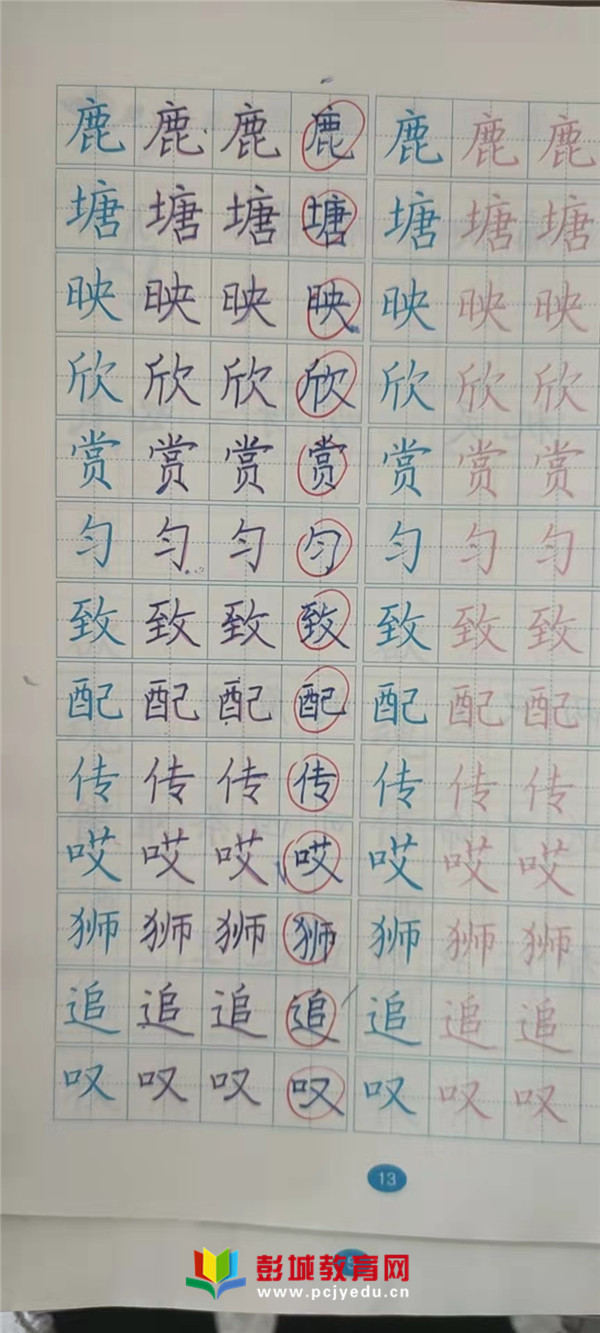 鹿鹿鹿鹿鹿鹿鹿
塘塘塘塘塘塘塘
映映映映映映映
欣欣欣欣欣欣欣
赏赏赏赏赏赏赏
匀匀匀匀匀匀匀
致致致致致致致
配配配配配配配
传传传传传传传
哎哎哎哎哎哎哎
狮狮狮狮狮狮狮
追追追追追追追
叹叹叹叹叹叹叹
13
彭城教育网
www.pcjyedu.cn